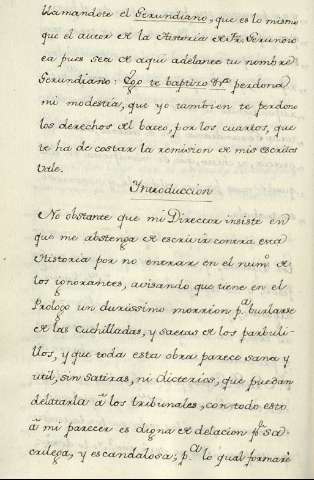 llamandote el Gerundiano, que es lo mismo
que el autor de la Historia de Fr. Gerundio
ea pues sea de aqui adelante tu nombre
Gerundiano: Ego te baptizo &ra perdona
mi modestia, que yo tambien te perdono
los derechos del bateo, por los cuartos, que
te ha de costar la remision de mis escritos
Vale.
Introduccion
No obstante que mi Director insiste en
que me abstenga de escrivir contra esta
Historia por no entrar en el numo. de
los ignorantes, avisando que tiene en el
Prologo un durissimo morrion pa. burlarse
de las cuchilladas, y saetas de los parbuli-
llos, y que toda esta obra parece sana y
util, sin satiras, ni dicterios, que puedan
delatarla à los tribunales, con todo esto
à mi parecer es digna de delacion pr. sa-
crilega, y escandalosa; pa. lo qual formarè